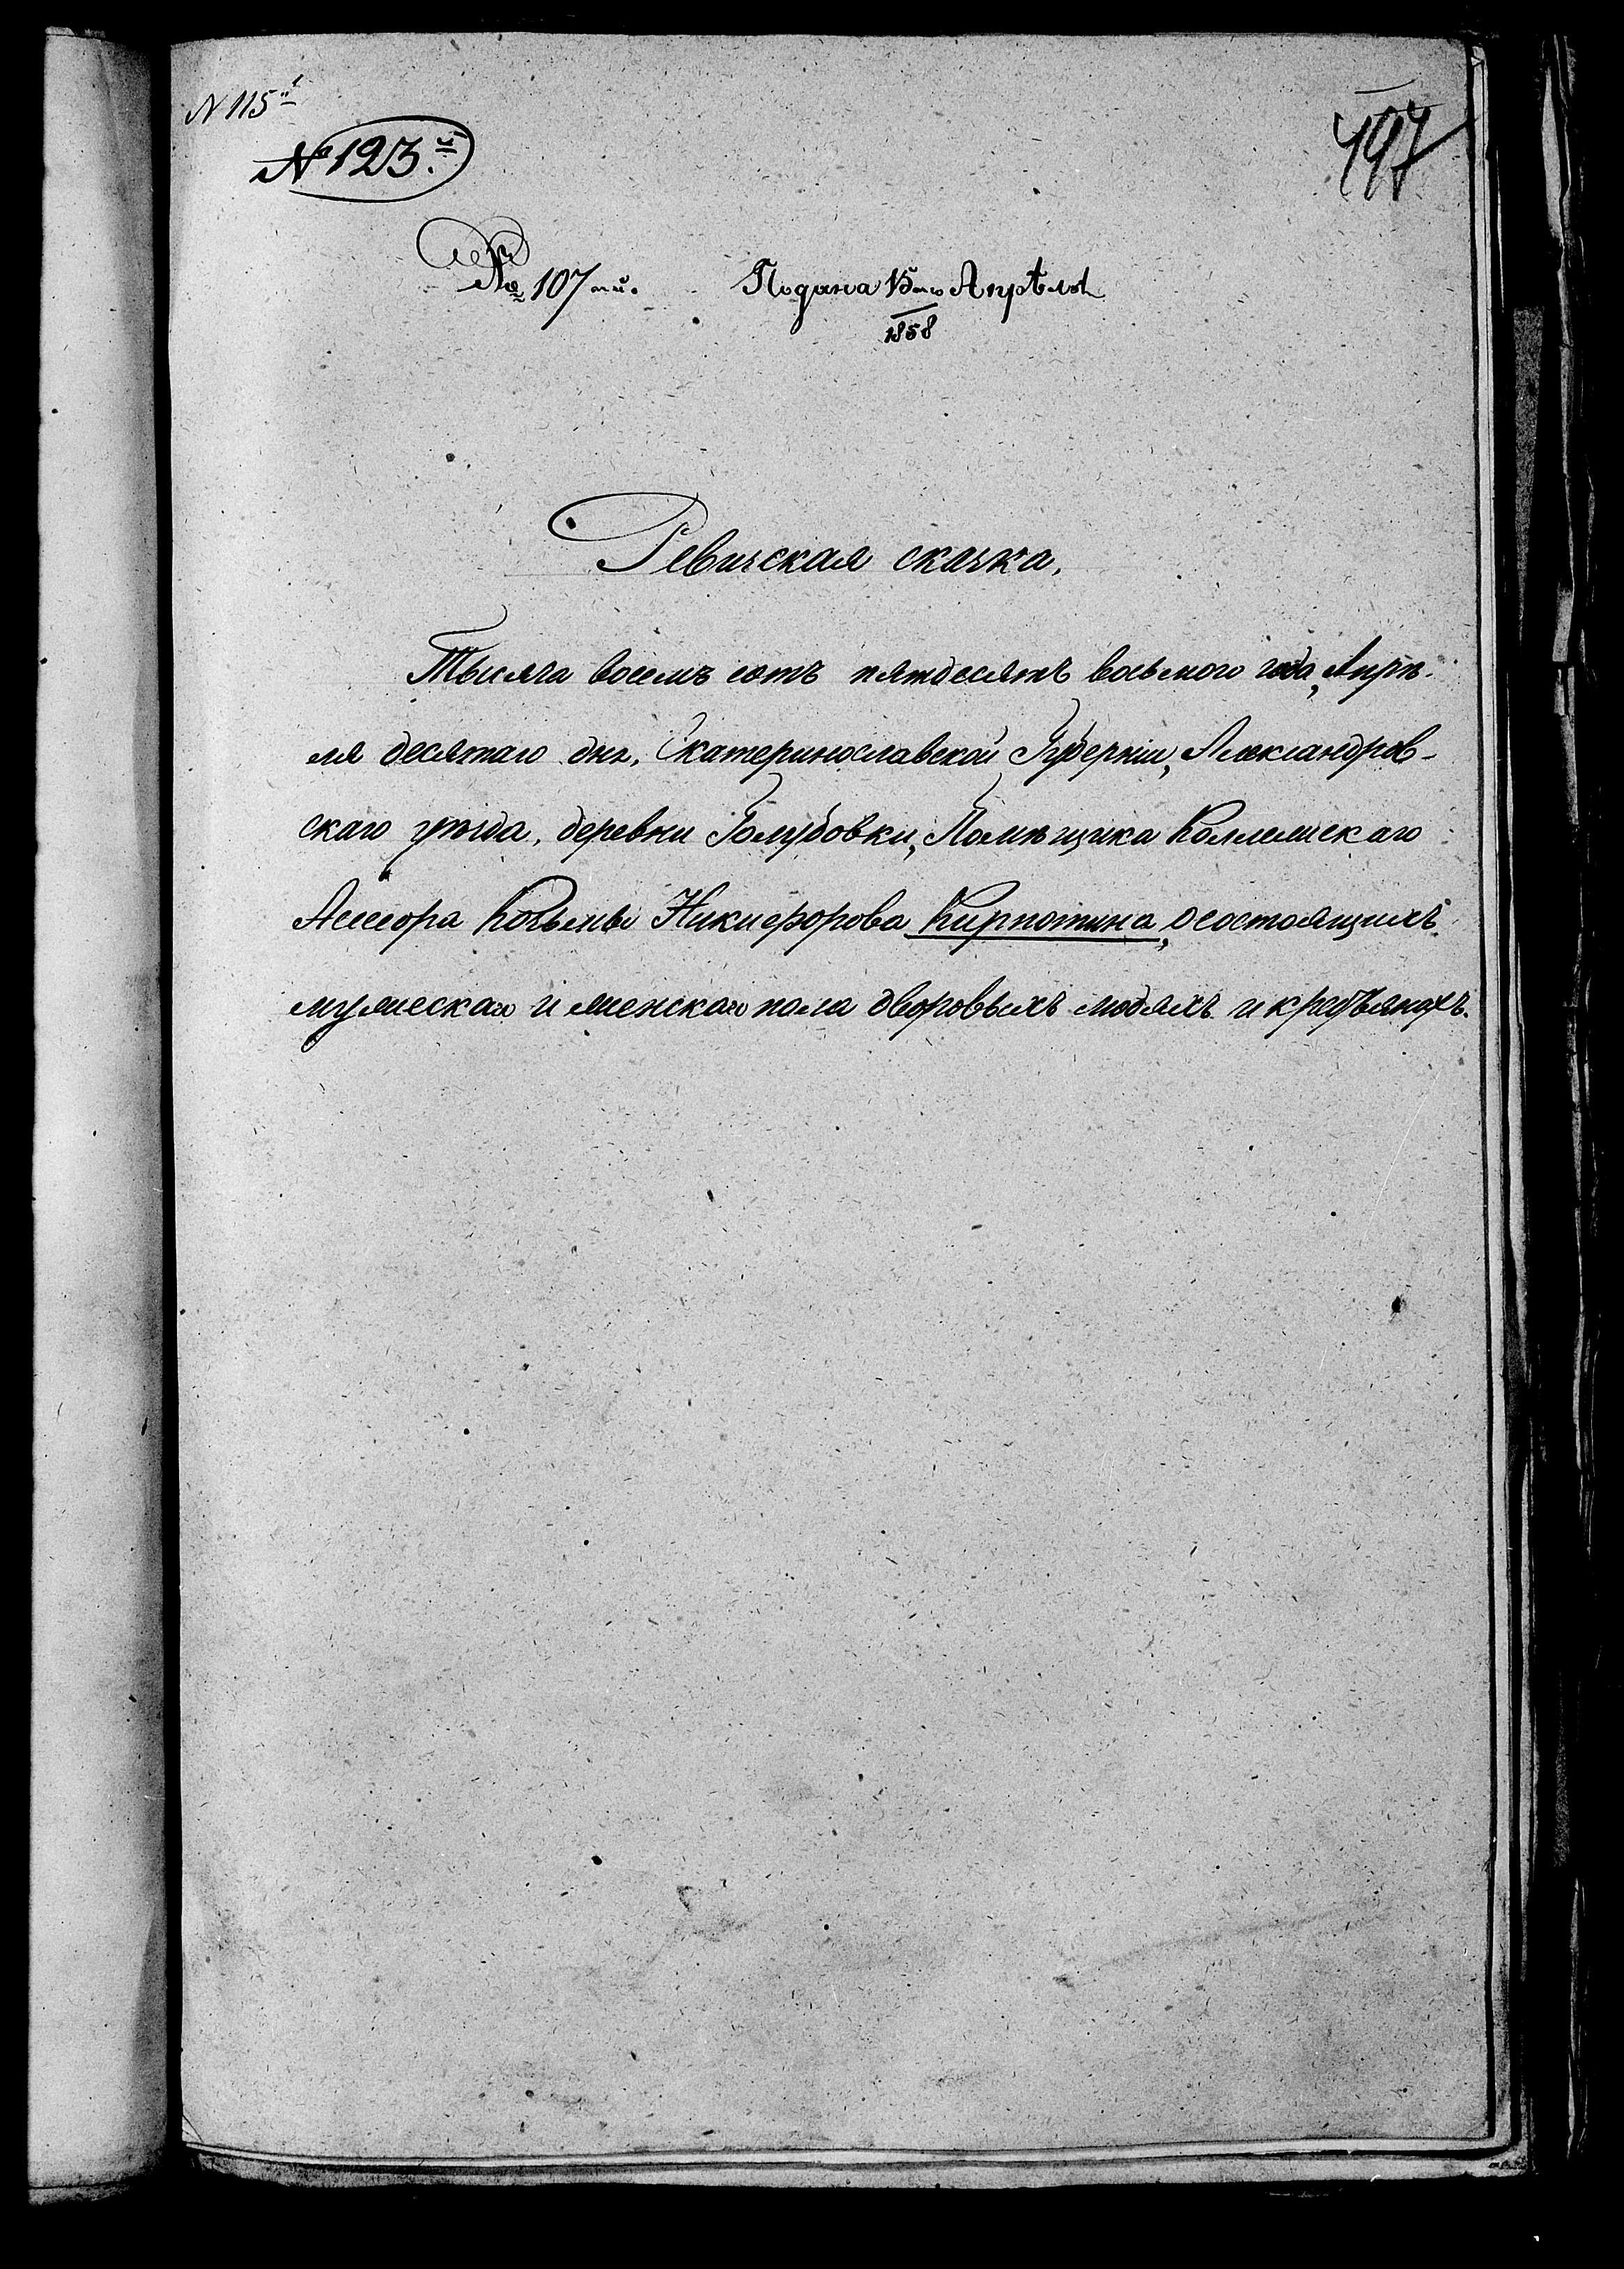 N 115й
497
№ 123.й
№ 107мй. Подана 15го Апрѣля
1858
Ревизская сказка.
Тысяча восемъ сотъ пятдесятъ восьмого года, Апрѣ-
ля десятаго дня, Екатеринославской Губерніи, Александров-
скаго уѣзда, деревни Голубовки, Помѣщика Коллежскаго
Ассесора Козьмы Никифорова Кирпотина, о состоящихъ
мужескаго и женскаго пола дворовыхъ людяхъ и крестьянахъ.